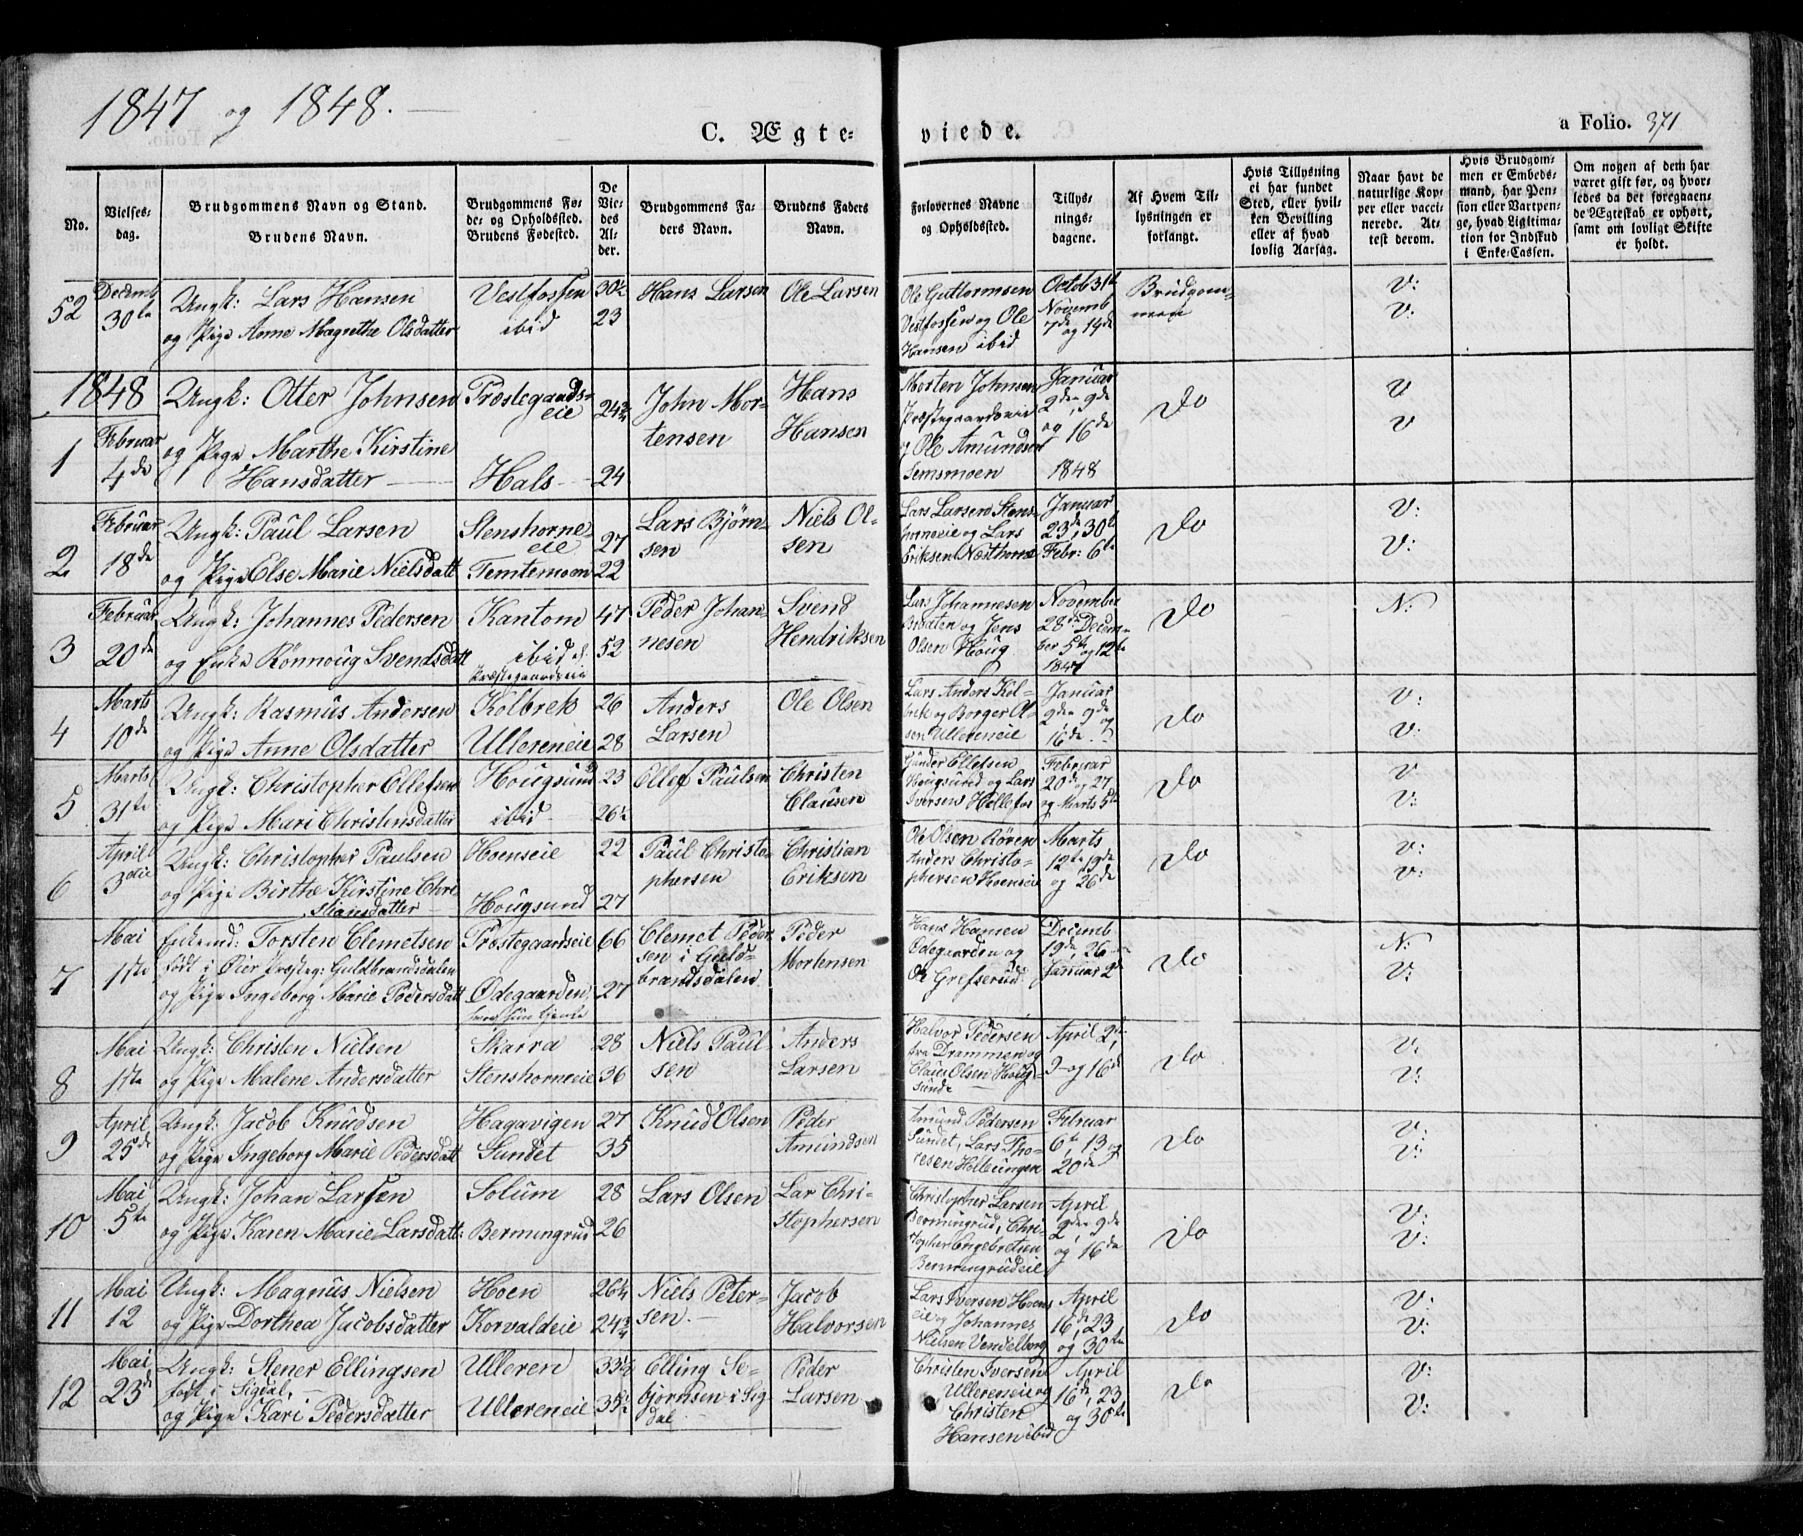 1847 og 1848.
C. Ægte-viede.
a Folio. 371
No.
Vielses-
dag.
Brudgommens Navn og Stand.
Brudens Navn.
Brudgommens Fø-
de- og Opholdssted.
Brudens Fødested.
De
Vie-
des
Al-
der.
Brudgommens Fa-
ders Navn.
Brudens Faders
Navn.
Forlovernes Navne
og Opholdssted.
Tillys-
nings-
dagene.
Af Hvem Til-
lysningen er
forlangt.
Hvis Tillysning
ei har fundet
Sted, eller hvil-
ken Bevilling
eller af hvad
lovlig Aarsag.
Naar havt de
naturlige Kop-
per eller vacci-
nerede. At-
test derom.
Hvis Brudgom-
men er Embeds-
mand, har Pen-
sion eller Vartpen-
ge, hvad Ligitima-
tion for Indskud
i Enke-Cassen.
Om nogen af dem har
været gift før, og hvor-
ledes da det foregaaen-
de Ægteskab er ophørt,
samt om lovligt Skifte
er holdt.
52 Decemb 30te
Ungk: Lars Hansen
og Pige Anne Magrethe Olsdatter
Vestfossen
ibid
30½
23
Hans Larsen
Ole Larsen
Ole Guttormsen
Vestfossen og Ole
Hansen ibid
Octob 31te
Novemb
7de og 14de
Brudgom-
men
V:
V:
1848
1 Februar 4de
Ungk: Otter Johnsen
og Pige Marthe Kirstine
Hansdatter
Præstegaards-
eie
Hals
24¾
24
John Mor-
tensen
Hans
Hansen
Morten Johnsen
Præstegaardseie
og Ole Amundsen
Semsmoen
Januar
2den, 9de
og 16de
1848
Do
V
V
2 Februar 18de
Ungk: Paul Larsen
og Pige Else Marie Nielsdatt
Stenshorne-
eie
Temtemoen
27
22
Lars Bjørn-
sen
Niels Ol-
sen
Lars Larsen Stens-
horneeie og Lars
Eriksen Næsthorne
Januar
23de, 30te
Febr: 6te
Do
V:
V:
3 Februar 20de
Ungk: Johannes Pedersen
og Enke Rønnoug Svendsdatt
Kantom
ibid d.
Præstegaardseie
47
52
Peder Johan-
nesen
Svend
Hendriksen
Lars Johannesen
Braaten og Jens
Olsen Houg
November
28de Decem-
ber 5te og 12te
1847
Do
N:
4 Marts 10de
Ungk: Rasmus Andersen
og Pige Anne Olsdatter
Kolbrek
Ullereneie
26
28
Anders
Larsen
Ole Olsen
Lars Anders Kol-
brek og Borger Ol-
sen Ullereneie
Januar
2den 9de og
16de
Do
V:
V:
5 Marts 31te
Ungk: Christopher Ellefsen
og Pige Mari Christensdatter
Hougsund
ibid
23
26½
Ellef Paulsen
Christen
Clausen
Gunder Ellefsen
Hougsund og Lars
Iversen Hellefos
Februar
20de og 27
og Marts 5te
Do
V
V:
6 April 3die
Ungk: Christopher Paulsen
og Pige Birthe Kirstine Chri
stiansdatter
Hoenseie
Hougsund
22
27
Paul Christo-
phersen
Christian
Eriksen
Ole Olsen Røren
Anders Christo-
phersen Hoenseie
Marts
12te, 19de
og 26de
Do
V:
V:
7 Mai 1ste
Enkemd: Torsten Clemetsen
født i Øier Præsteg: Guldbrandsdalen
og Pige Ingeborg Marie Pedersdatt
Præstegaardseie
Ødegaarden
hvor hun tjente
66
27
Clemet Peder
sen i Guld-
brandsdalen
Peder
Mortensen
Hans Hansen
Ødegaarden og
Ole Grefsrud
Decemb
19de, 26
Januar 2de
Do
N:
V:
8 Mai 1ste
Ungk: Christen Nielsen
og Pige Malene Andersdatter
Skarra
Stenshorneeie
28
36
Niels Paul
sen
Anders
Larsen
Halvor Pedersen
fra Drammen og
Claus Olsen Houg-
sund
April 2den,
9 og 16de
Do
V:
V:
9 April 25de
Ungk: Jacob Knudsen
og Pige Ingeborg Marie Pedersdatt
Hagavigen
Sundet
27
35
Knud Olsen
Peder
Amundsen
Amund Pedersen
Sundet, Lars Tho-
resen Holleungen
Februar
6te, 13 og
20de
Do
V:
V:
10 Mai 5te
Ungk: Johan Larsen
og Pige Karen Marie Larsdatt:
Solum
Bermingrud
28
26
Lars Olsen
Lar Chri-
stophersen
Christopher Larsen
Bermingrud, Chri-
stopher Engebretsen
Bermingrudeie
April
2den, 9de
og 16de
Do
V:
V:
11 Mai 12
Ungk: Magnus Nielsen
og Pige Dorthea Jacobsdatter
Hoen
Korvaldeie
26¼
24¾
Niels Peter-
sen.
Jacob
Halvorsen
Lars Iversen Hoens
eie og Johannes
Nielsen Vendelborg
April
16de, 23
og 30te
Do
V:
V:
12 Mai 23de
Ungk: Stener Ellingsen
født i Sigdal,
og Pige Kari Pedersdatter
Ulleren
Ullereneie
33½
35½
Elling Se-
bjørnsen i Sig
dal
Peder
Larsen
Christen Iversen
Ullereneie og
Christen
Hansen ibid
April
16de, 23
og 30te
Do
V:
V: